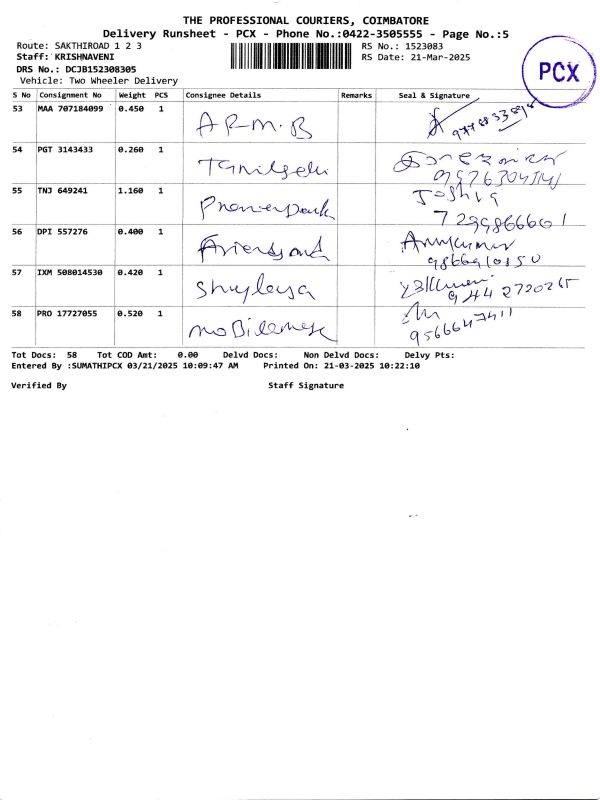 THE PROFESSIONAL COURIERS, COIMBATORE
Delivery Runsheet - PCX - Phone No.:0422-3505555 - Page No.:5
Route: SAKTHIROAD 1 2 3
RS No.: 1523083
Staff: KRISHNAVENI
RS Date: 21-Mar-2025
DRS No.: DCJB152308305
Vehicle: Two Wheeler Delivery
PCX
S No Consignment No Weight PCS Consignee Details Remarks Seal & Signature
53 MAA 707184099 0.450 1 A R M. B
54 PGT 3143433 0.260 1
55 TNJ 649241 1.160 1 Joshia
7239866601
56 DPI 557276 0.400 1 Arunkumar
57 IXM 508014530 0.420 1
58 PRO 17727055 0.520 1
9566647411
Tot Docs: 58 Tot COD Amt: 0.00 Delvd Docs: Non Delvd Docs: Delvy Pts:
Entered By :SUMATHIPCX 03/21/2025 10:09:47 AM Printed On: 21-03-2025 10:22:10
Verified By Staff Signature